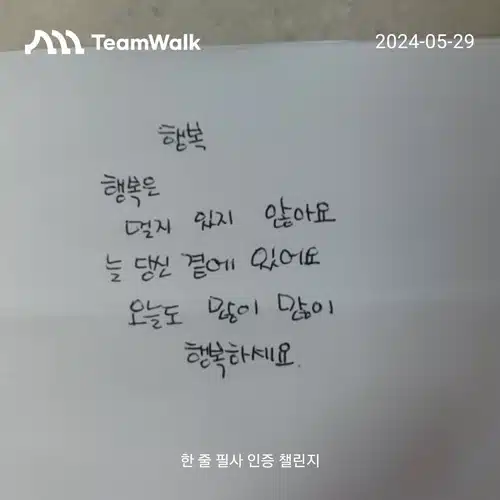 TeamWalk
2024-05-29
행복
행복은
멀지 있지 않아요
늘 당신 곁에 있어요
오늘도 많이 많이
행복하세요.
한 줄 필사 인증 챌린지